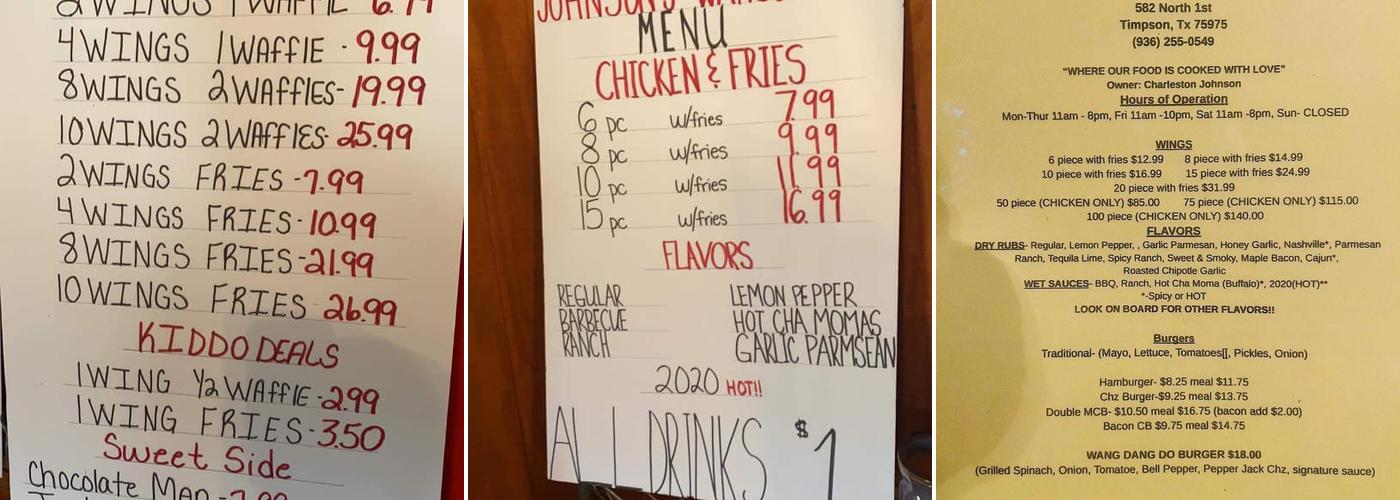 2 WINGS 1 WAFFLE 6.99
4 WINGS 1 WAFFLE - 9.99
8 WINGS 2 WAFFLES - 19.99
10 WINGS 2 WAFFLES - 25.99
2 WINGS FRIES - 7.99
4 WINGS FRIES - 10.99
8 WINGS FRIES - 21.99
10 WINGS FRIES - 26.99
KIDDO DEALS
1 WING 1/2 WAFFLE - 2.99
1 WING FRIES - 3.50
Sweet Side
Chocolate Man
JOHNSON'S
MENU
CHICKEN & FRIES
6 pc w/fries 7.99
8 pc w/fries 9.99
10 pc w/fries 11.99
15 pc w/fries 16.99
FLAVORS
REGULAR LEMON PEPPER
BARBECUE HOT CHA MOMAS
RANCH GARLIC PARMSEAN
2020 HOT!!
ALL DRINKS $1
582 North 1st
Timpson, Tx 75975
(936) 255-0549
“WHERE OUR FOOD IS COOKED WITH LOVE”
Owner: Charleston Johnson
Hours of Operation
Mon-Thur 11am - 8pm, Fri 11am -10pm, Sat 11am -8pm, Sun- CLOSED
WINGS
6 piece with fries $12.99 8 piece with fries $14.99
10 piece with fries $16.99 15 piece with fries $24.99
20 piece with fries $31.99
50 piece (CHICKEN ONLY) $85.00 75 piece (CHICKEN ONLY) $115.00
100 piece (CHICKEN ONLY) $140.00
FLAVORS
DRY RUBS- Regular, Lemon Pepper, , Garlic Parmesan, Honey Garlic, Nashville*, Parmesan
Ranch, Tequila Lime, Spicy Ranch, Sweet & Smoky, Maple Bacon, Cajun*,
Roasted Chipotle Garlic
WET SAUCES- BBQ, Ranch, Hot Cha Moma (Buffalo)*, 2020(HOT)**
*-Spicy or HOT
LOOK ON BOARD FOR OTHER FLAVORS!!
Burgers
Traditional- (Mayo, Lettuce, Tomatoes[[, Pickles, Onion)
Hamburger- $8.25 meal $11.75
Chz Burger-$9.25 meal $13.75
Double MCB- $10.50 meal $16.75 (bacon add $2.00)
Bacon CB $9.75 meal $14.75
WANG DANG DO BURGER $18.00
(Grilled Spinach, Onion, Tomatoe, Bell Pepper, Pepper Jack Chz, signature sauce)